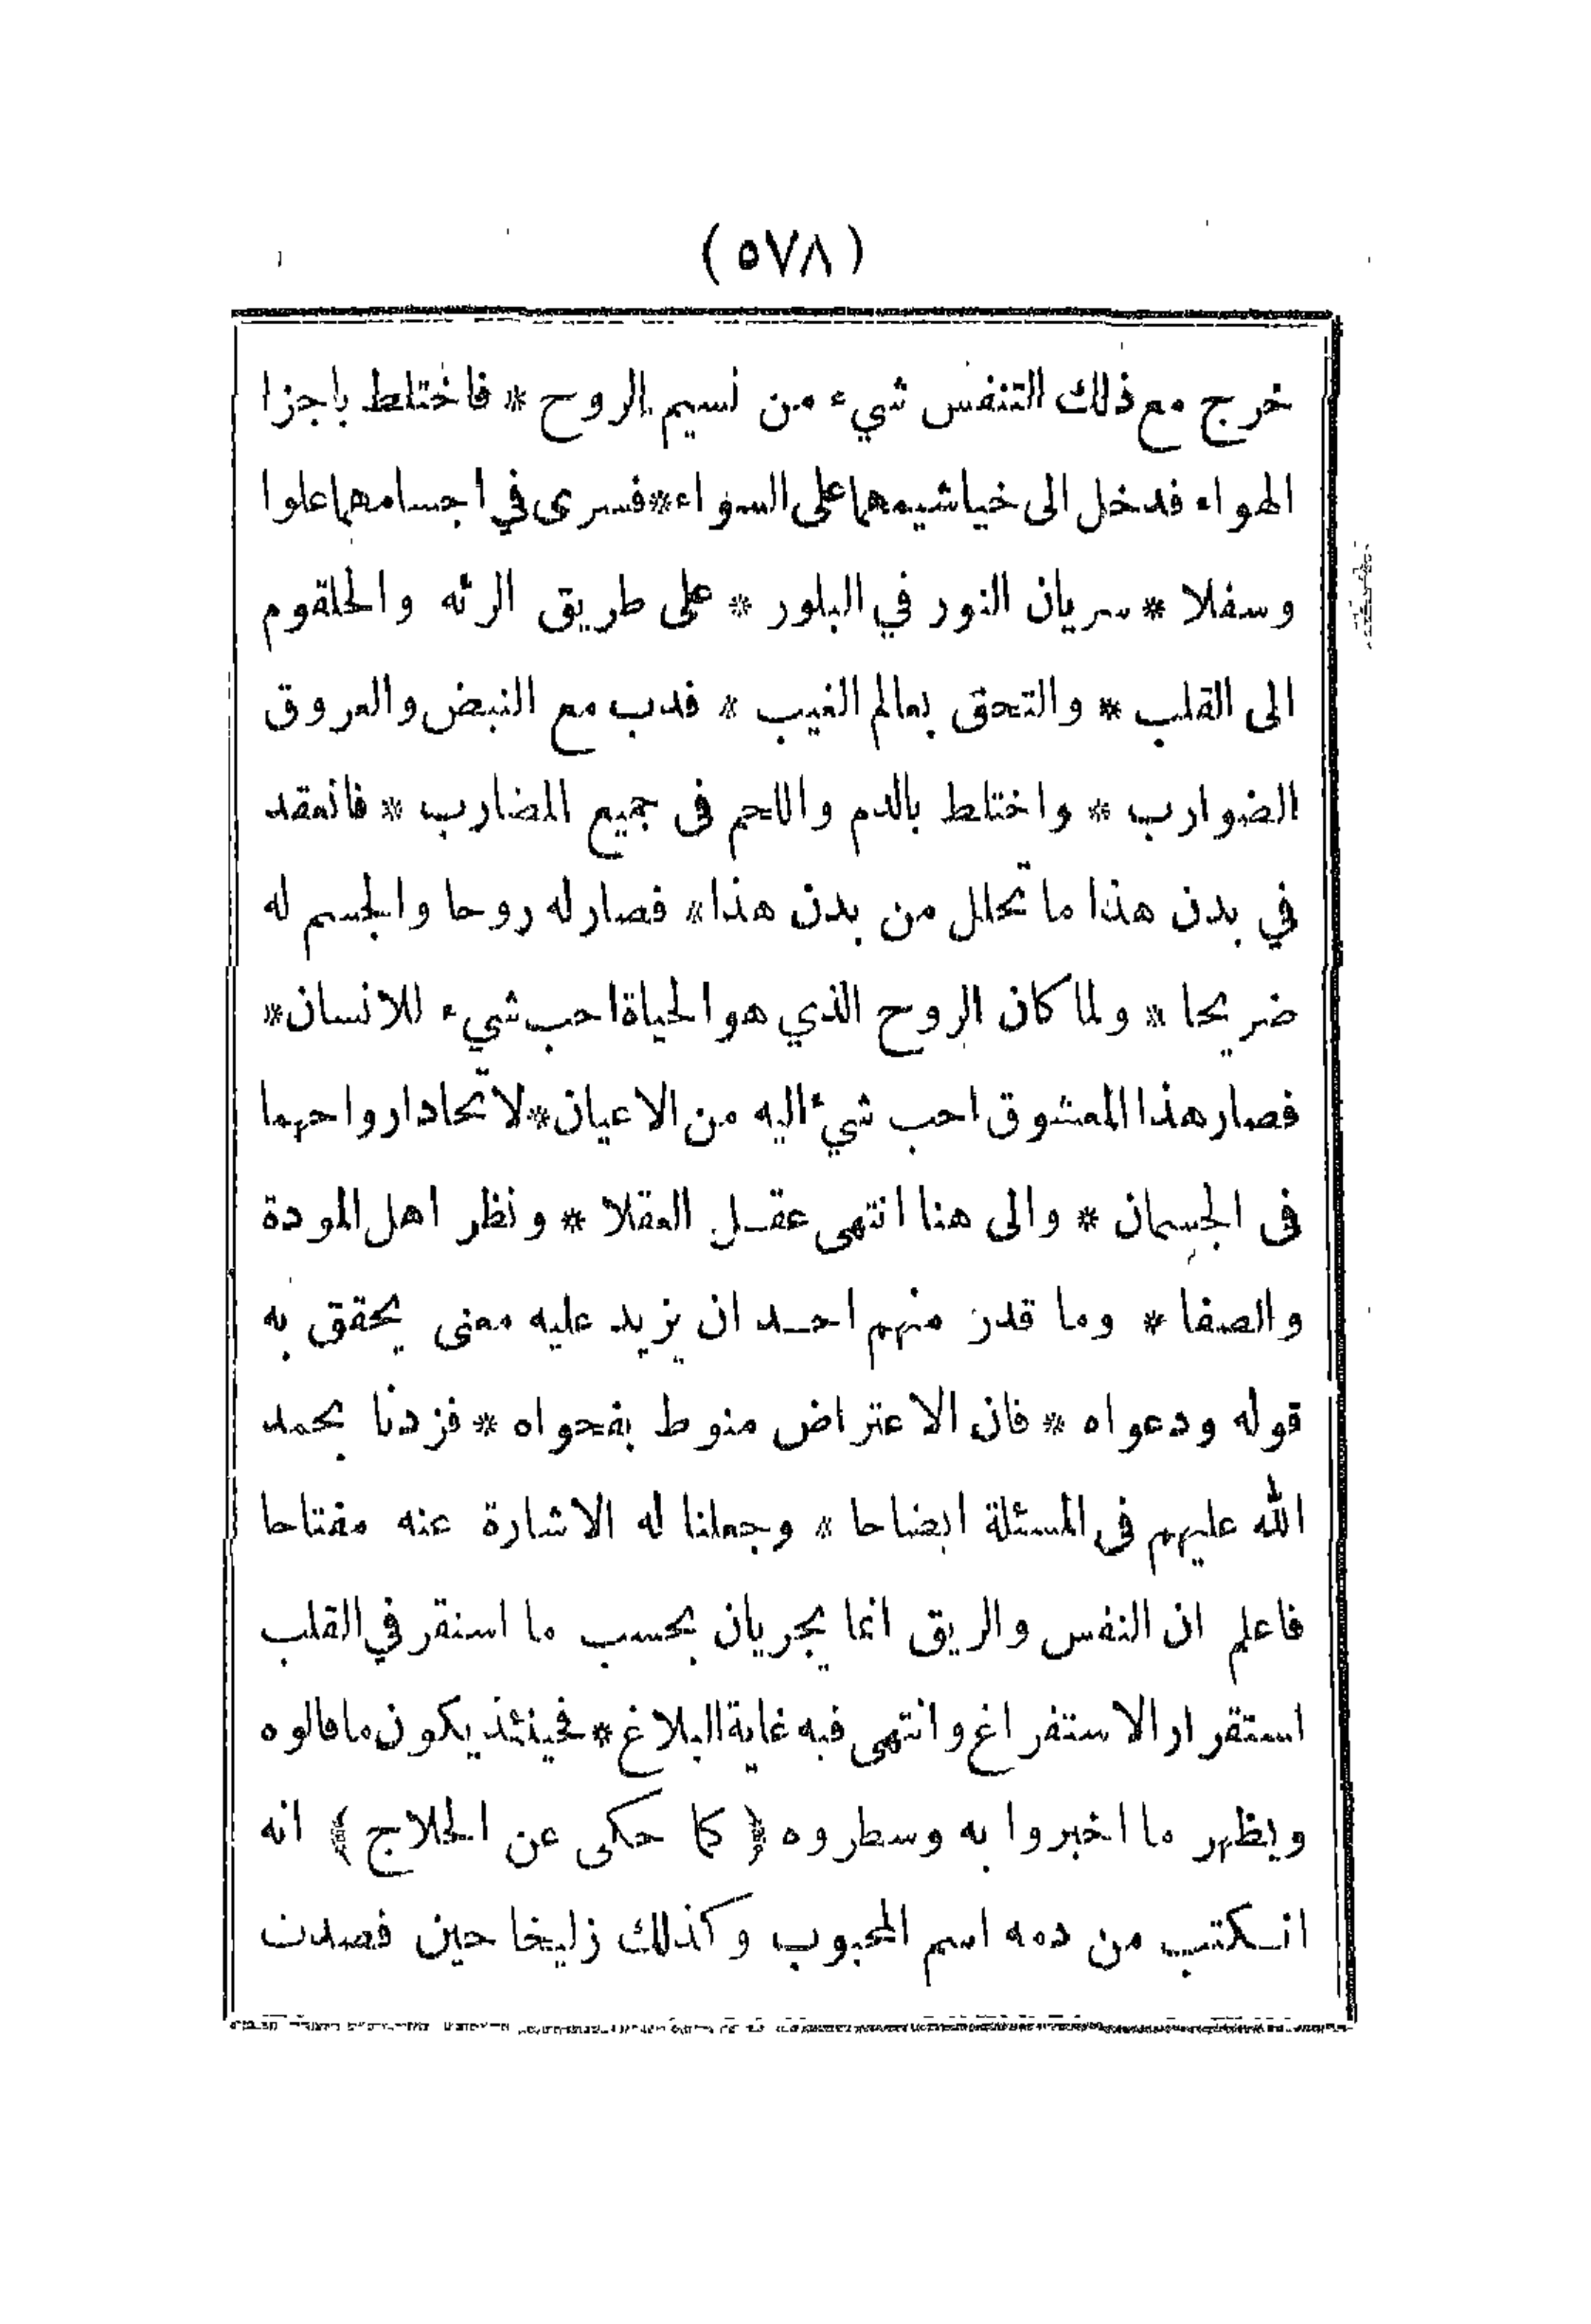 (٥٧٨)
خرج مع ذلك التنفس شيء من نسيم الروح * فاختلط باجزا
الهواء فدخل الى خياشيمهما على السواء * فسرى في اجسامهما علوا
وسفلا * سريان النور في البلور * على طريق الرئه والحلقوم
الى القلب * والتحق بعالم الغيب * فدب مع النبض والعروق
الضوارب * واختلط بالدم واللحم فى جميع المضارب * فانعقد
في بدن هذا ما تحلل من بدن هذا * فصار له روحا والجسم له
ضريحا * ولما كان الروح الذي هو الحياة احب شيء للانسان *
فصار هذا المعشوق احب شيء اليه من الاعيان * لاتحاد ارواحهما
فى الجسمان * والى هنا انتهى عقل العقلا * ونظر اهل المودة
والصفا * وما قدر منهم احد ان يزيد عليه معنى يحقق به
قوله ودعواه * فان الاعتراض منوط بفحواه * فزدنا بحمد
الله عليهم فى المسئلة ايضاحا * وجعلنا له الاشارة عنه مفتاحا
فاعلم ان النفس والريق انما يجريان بحسب ما استقر في القلب
استقرار الاستفراغ وانتهى فيه غاية البلاغ * فحينئذ يكون ما قالوه
ويظهر ما اخبروا به وسطروه ﴿ كما حكى عن الحلاج ﴾ انه
انكتب من دمه اسم المحبوب وكذلك زليخا حين فصدت